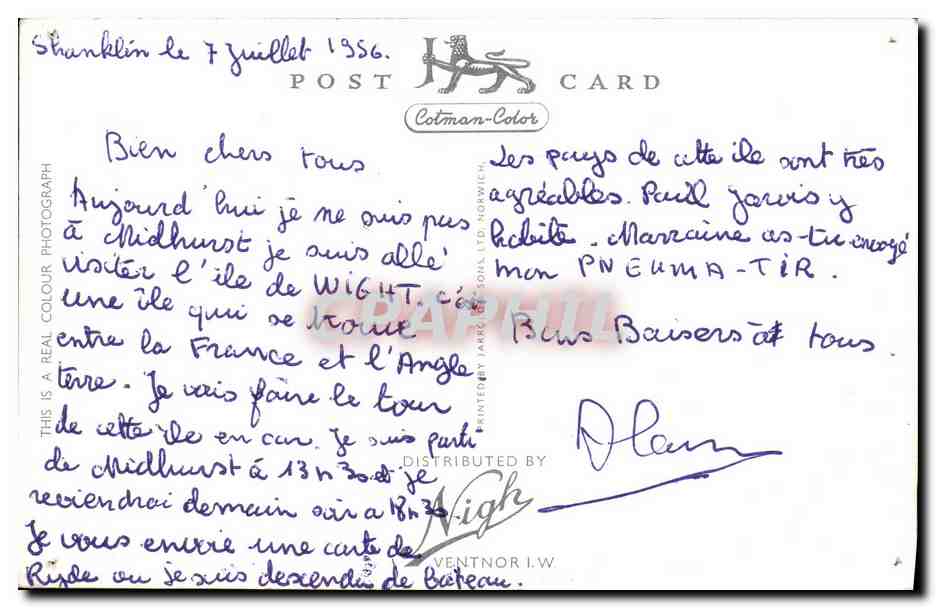 Shanklin le 7 Juillet 1956.
POST CARD
Cotman-Color
Bien chers tous
Aujourd'hui je ne suis pas
à Midhurst je suis allé
visiter l'ile de WIGHT. c'est
une île qui se trouve
entre la France et l'Angle
terre. Je vais faire le tour
de cette ile en car. Je suis parti
de Midhurst à 13h30 et je
reviendrai demain soir a 18h30
Je vous envoie une carte de
Ryde ou je suis descendu de bateau.
Les pays de cette ile sont très
agréables. Paul Jarvis y
habite. Marraine as-tu envoyé
mon PNEUMA-TIR.
Bons Baisers à tous.
Alain
THIS IS A REAL COLOUR PHOTOGRAPH
PRINTED BY JARROLD & SONS, LTD. NORWICH.
DISTRIBUTED BY
Nigh
VENTNOR I.W.
CRAPHIL